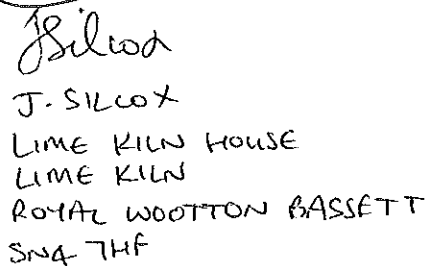 JSilcox
J. SILCOX
LIME KILN HOUSE
LIME KILN
ROYAL WOOTTON BASSETT
SN4 7HF